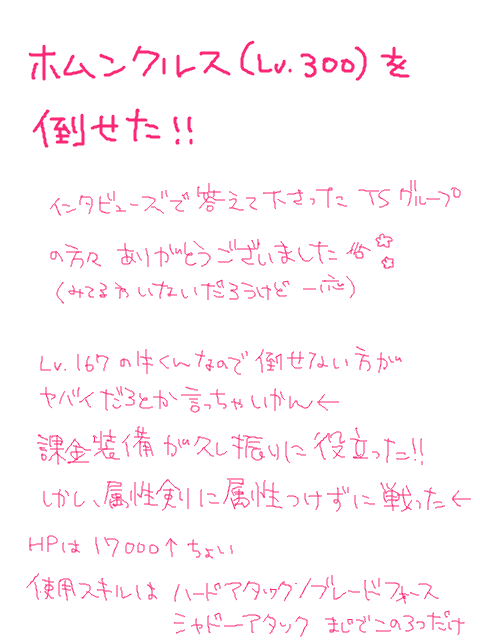 ホムンクルス(Lv.300)を
倒せた!!
インタビューズで答えて下さった TSグループ
の方々 ありがとうございました
(みてる方いないだろうけど一応)
Lv.167の牛くんなので倒せない方が
ヤバイだろとか言っちゃいかん←
課金装備が久し振りに役立った!!
しかし、属性剣りに属性つけずに戦った←
HPは17000↑ちょい
使用スキルは ハードアタック/ブレードフォース
シャドーアタック まじでこの3つだけ